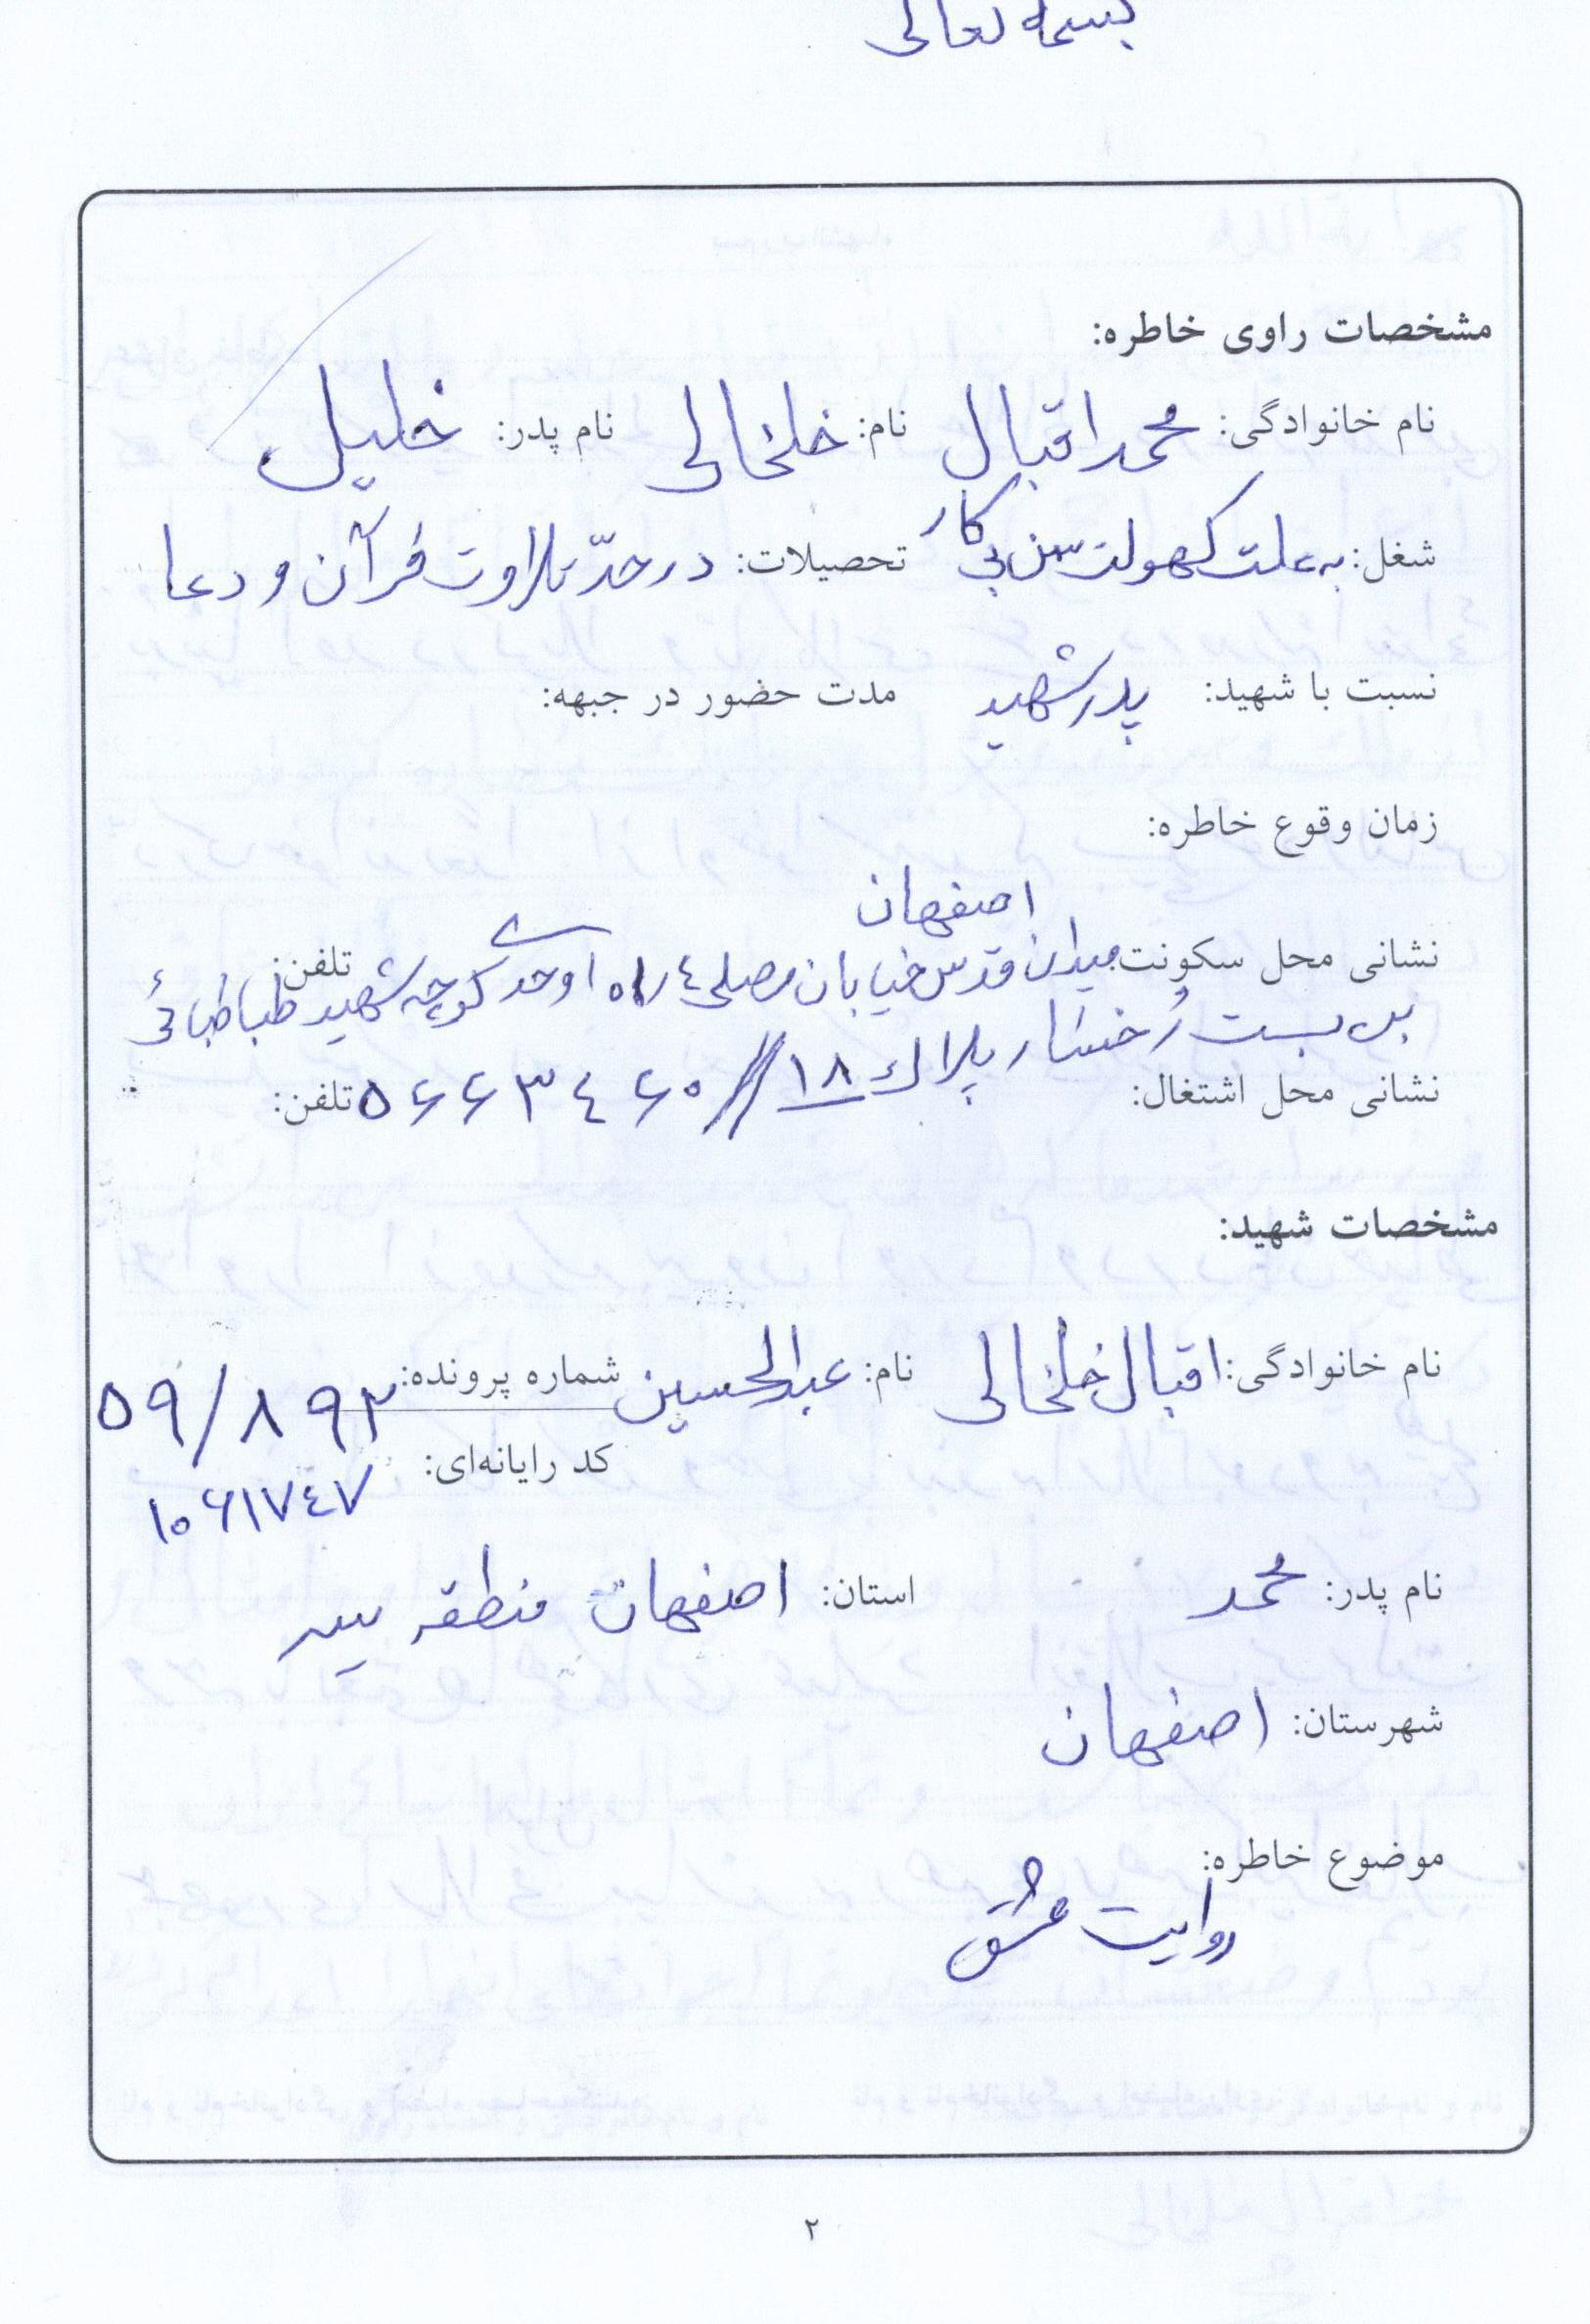 بسمه تعالی
مشخصات راوی خاطره:
نام خانوادگی: محمد اقبال نام: خلخالی نام پدر: خلیل
شغل: به علت کهولت سن بی کار تحصیلات: در حدّ تلاوت قرآن و دعا
نسبت با شهید: پدر شهید مدت حضور در جبهه:
زمان وقوع خاطره:
اصفهان
نشانی محل سکونت: میدان قدس خیابان مصلی ۴ راه اوحدی کوچه شهید طباطبائی تلفن:
بن بست رُخسار پلاک ۱۸ // ۵۶۶۳۴۶۰
نشانی محل اشتغال: تلفن:
مشخصات شهید:
نام خانوادگی: اقبال خلخالی نام: عبدالحسین شماره پرونده: ۵۹/۸۹۳
کد رایانه‌ای: ۱۰۶۱۷۴۷
نام پدر: محمد استان: اصفهان منطقه سه
شهرستان: اصفهان
موضوع خاطره:
روایت عشق
۲